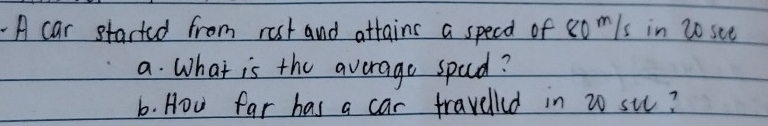 - A car started from rest and attains a speed of 80 m/s in 20 sec
a. What is the average speed?
b. How far has a car travelled in 20 sec?